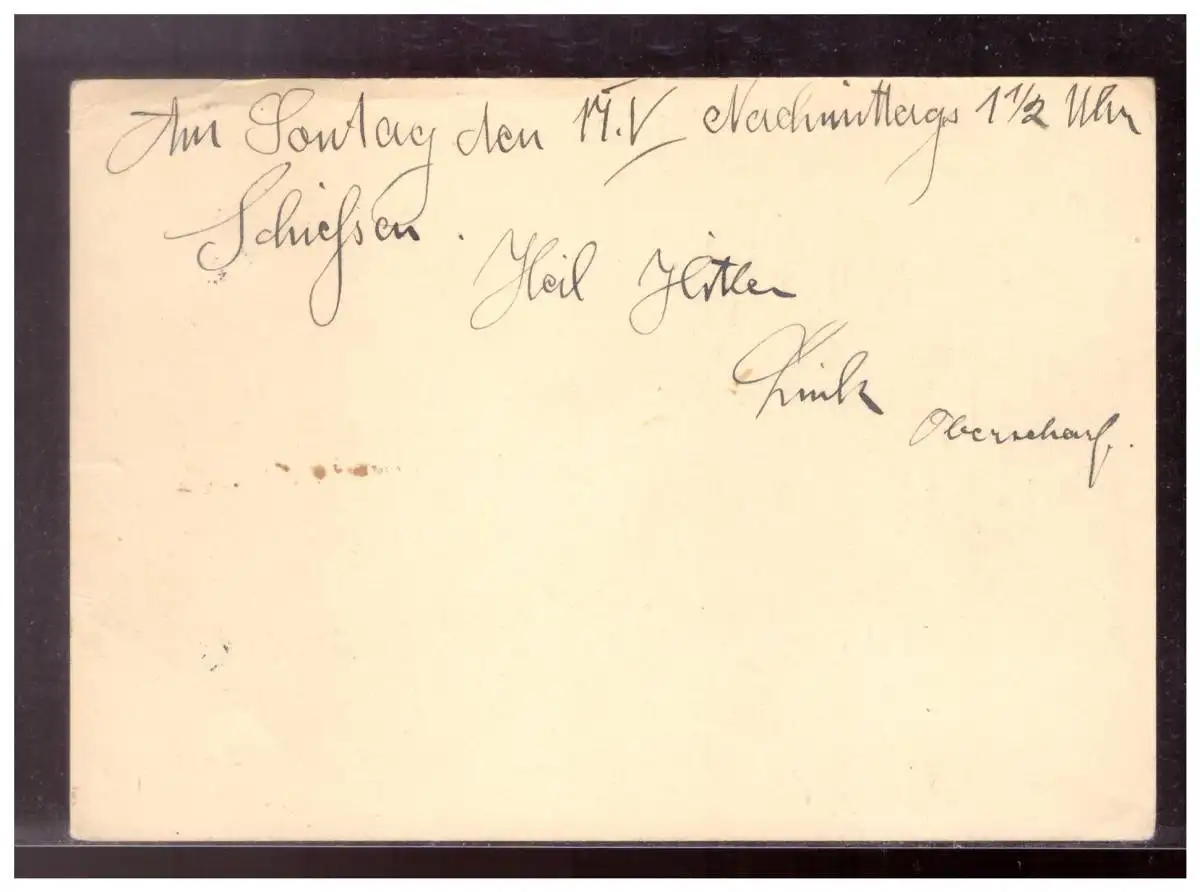 Am Sontag den 17.V Nachmittags 1 1/2 Uhr
Schießsen.
Heil Hitler
Link
Oberscharf.